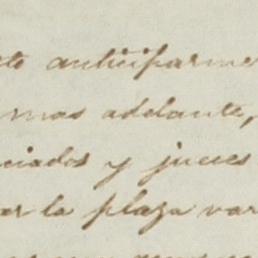 to anticiparme
mas adelante,
ciados y jueces
ar la plaza var